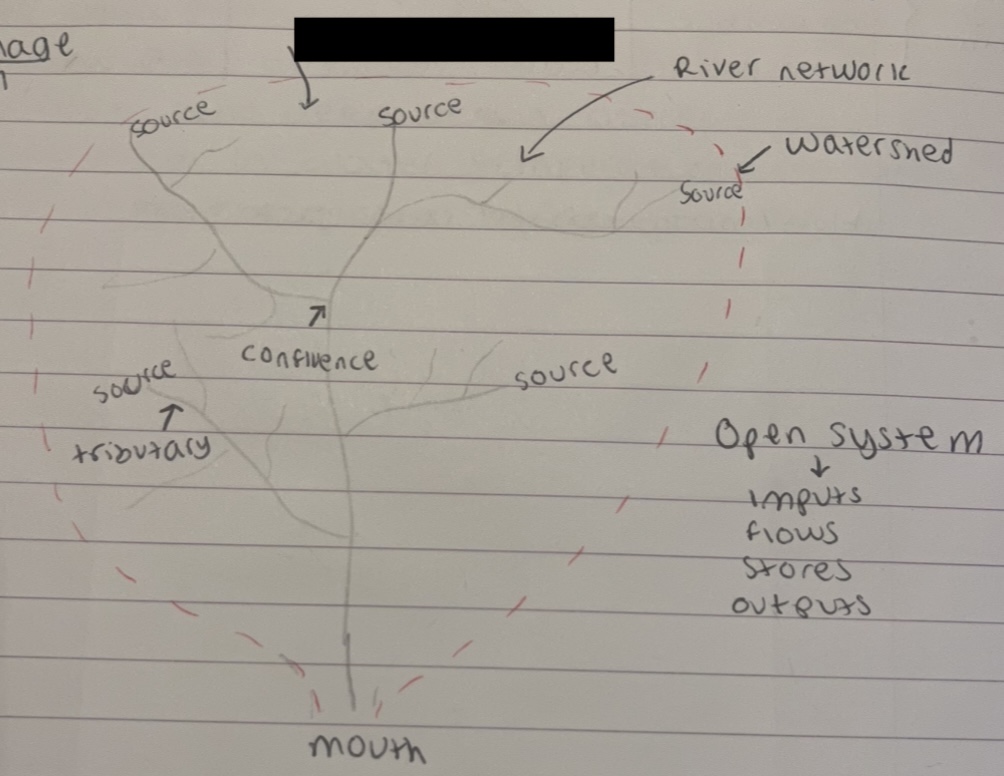 River network
source
source
Watershed
Source
confluence
source
source
tributary
Open system
inputs
flows
stores
outputs
mouth